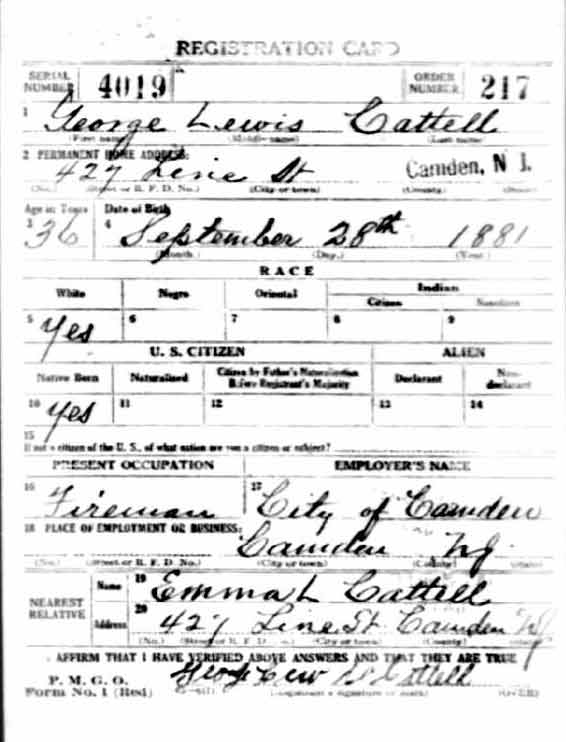 REGISTRATION CARD
SERIAL NUMBER 4019 ORDER NUMBER 217
1 George Lewis Cattell
(First name) (Middle name) (Last name)
2 PERMANENT HOME ADDRESS:
427 Line St Camden, N J.
(No.) (Street or R. F. D. No.) (City or town) (County) (State)
Age in Years Date of Birth
3 36 4 September 28th 1881
(Month.) (Day.) (Year.)
RACE
White Negro Oriental Indian
Citizen Noncitizen
5 Yes 6 7 8 9
U. S. CITIZEN ALIEN
Native Born Naturalized Citizen by Father's Naturalization Before Registrant's Majority Declarant Non-declarant
10 Yes 11 12 13 14
15
If not a citizen of the U. S., of what nation are you a citizen or subject?
PRESENT OCCUPATION EMPLOYER'S NAME
16 Fireman 17 City of Camden
18 PLACE OF EMPLOYMENT OR BUSINESS:
Camden NJ
(No.) (Street or R. F. D. No.) (City or town) (County) (State)
NEAREST RELATIVE Name 19 Emma L Cattell
Address 20 427 Line St Camden NJ
(No.) (Street or R. F. D. No.) (City or town) (County)
AFFIRM THAT I HAVE VERIFIED ABOVE ANSWERS AND THAT THEY ARE TRUE
P. M. G. O.
Form No. 1 (Red) George Cattell
(Registrant's signature or mark) (OVER)